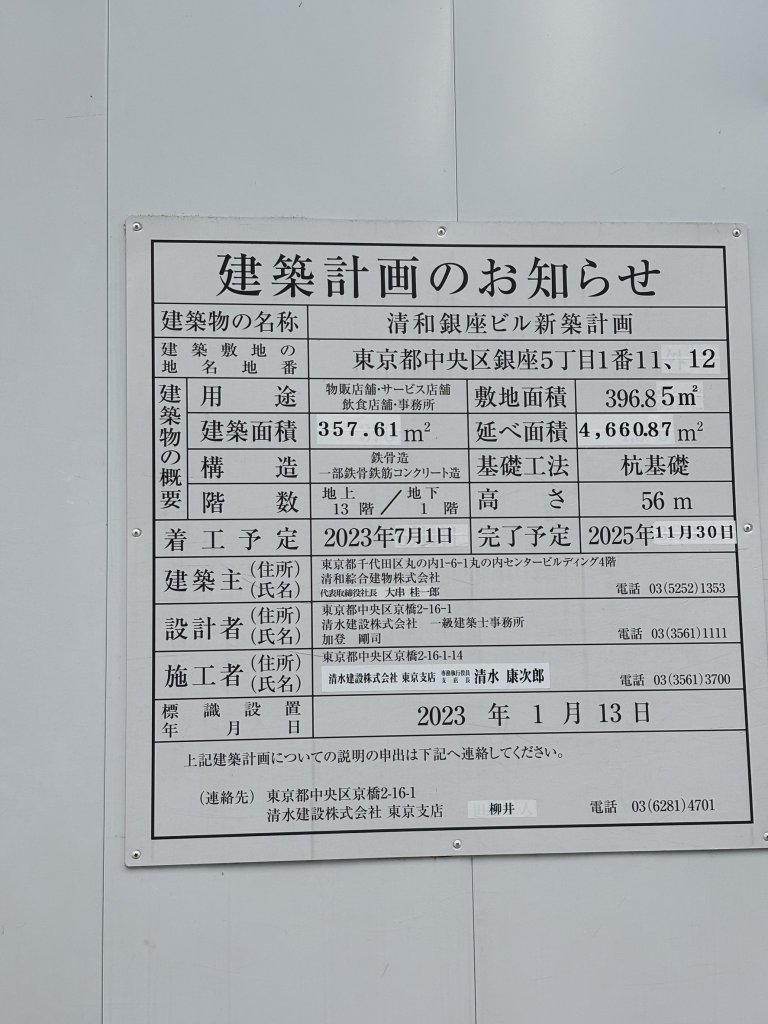 建築計画のお知らせ
建築物の名称 清和銀座ビル新築計画
建築敷地の地名地番 東京都中央区銀座5丁目1番11、12
建築物の概要
用途 物販店舗・サービス店舗 飲食店舗・事務所 敷地面積 396.85㎡
建築面積 357.61㎡ 延べ面積 4,660.87㎡
構造 鉄骨造 一部鉄骨鉄筋コンクリート造 基礎工法 杭基礎
階数 地上13階/地下1階 高さ 56m
着工予定 2023年7月1日 完了予定 2025年11月30日
建築主(住所)(氏名) 東京都千代田区丸の内1-6-1丸の内センタービルディング4階
清和綜合建物株式会社
代表取締役社長 大串 桂一郎 電話 03(5252)1353
設計者(住所)(氏名) 東京都中央区京橋2-16-1
清水建設株式会社 一級建築士事務所
加登 剛司 電話 03(3561)1111
施工者(住所)(氏名) 東京都中央区京橋2-16-1-14
清水建設株式会社 東京支店 専務執行役員支店長 清水 康次郎 電話 03(3561)3700
標識設置年月日 2023年1月13日
上記建築計画についての説明の申出は下記へ連絡してください。
(連絡先) 東京都中央区京橋2-16-1
清水建設株式会社 東京支店 柳井 電話 03(6281)4701